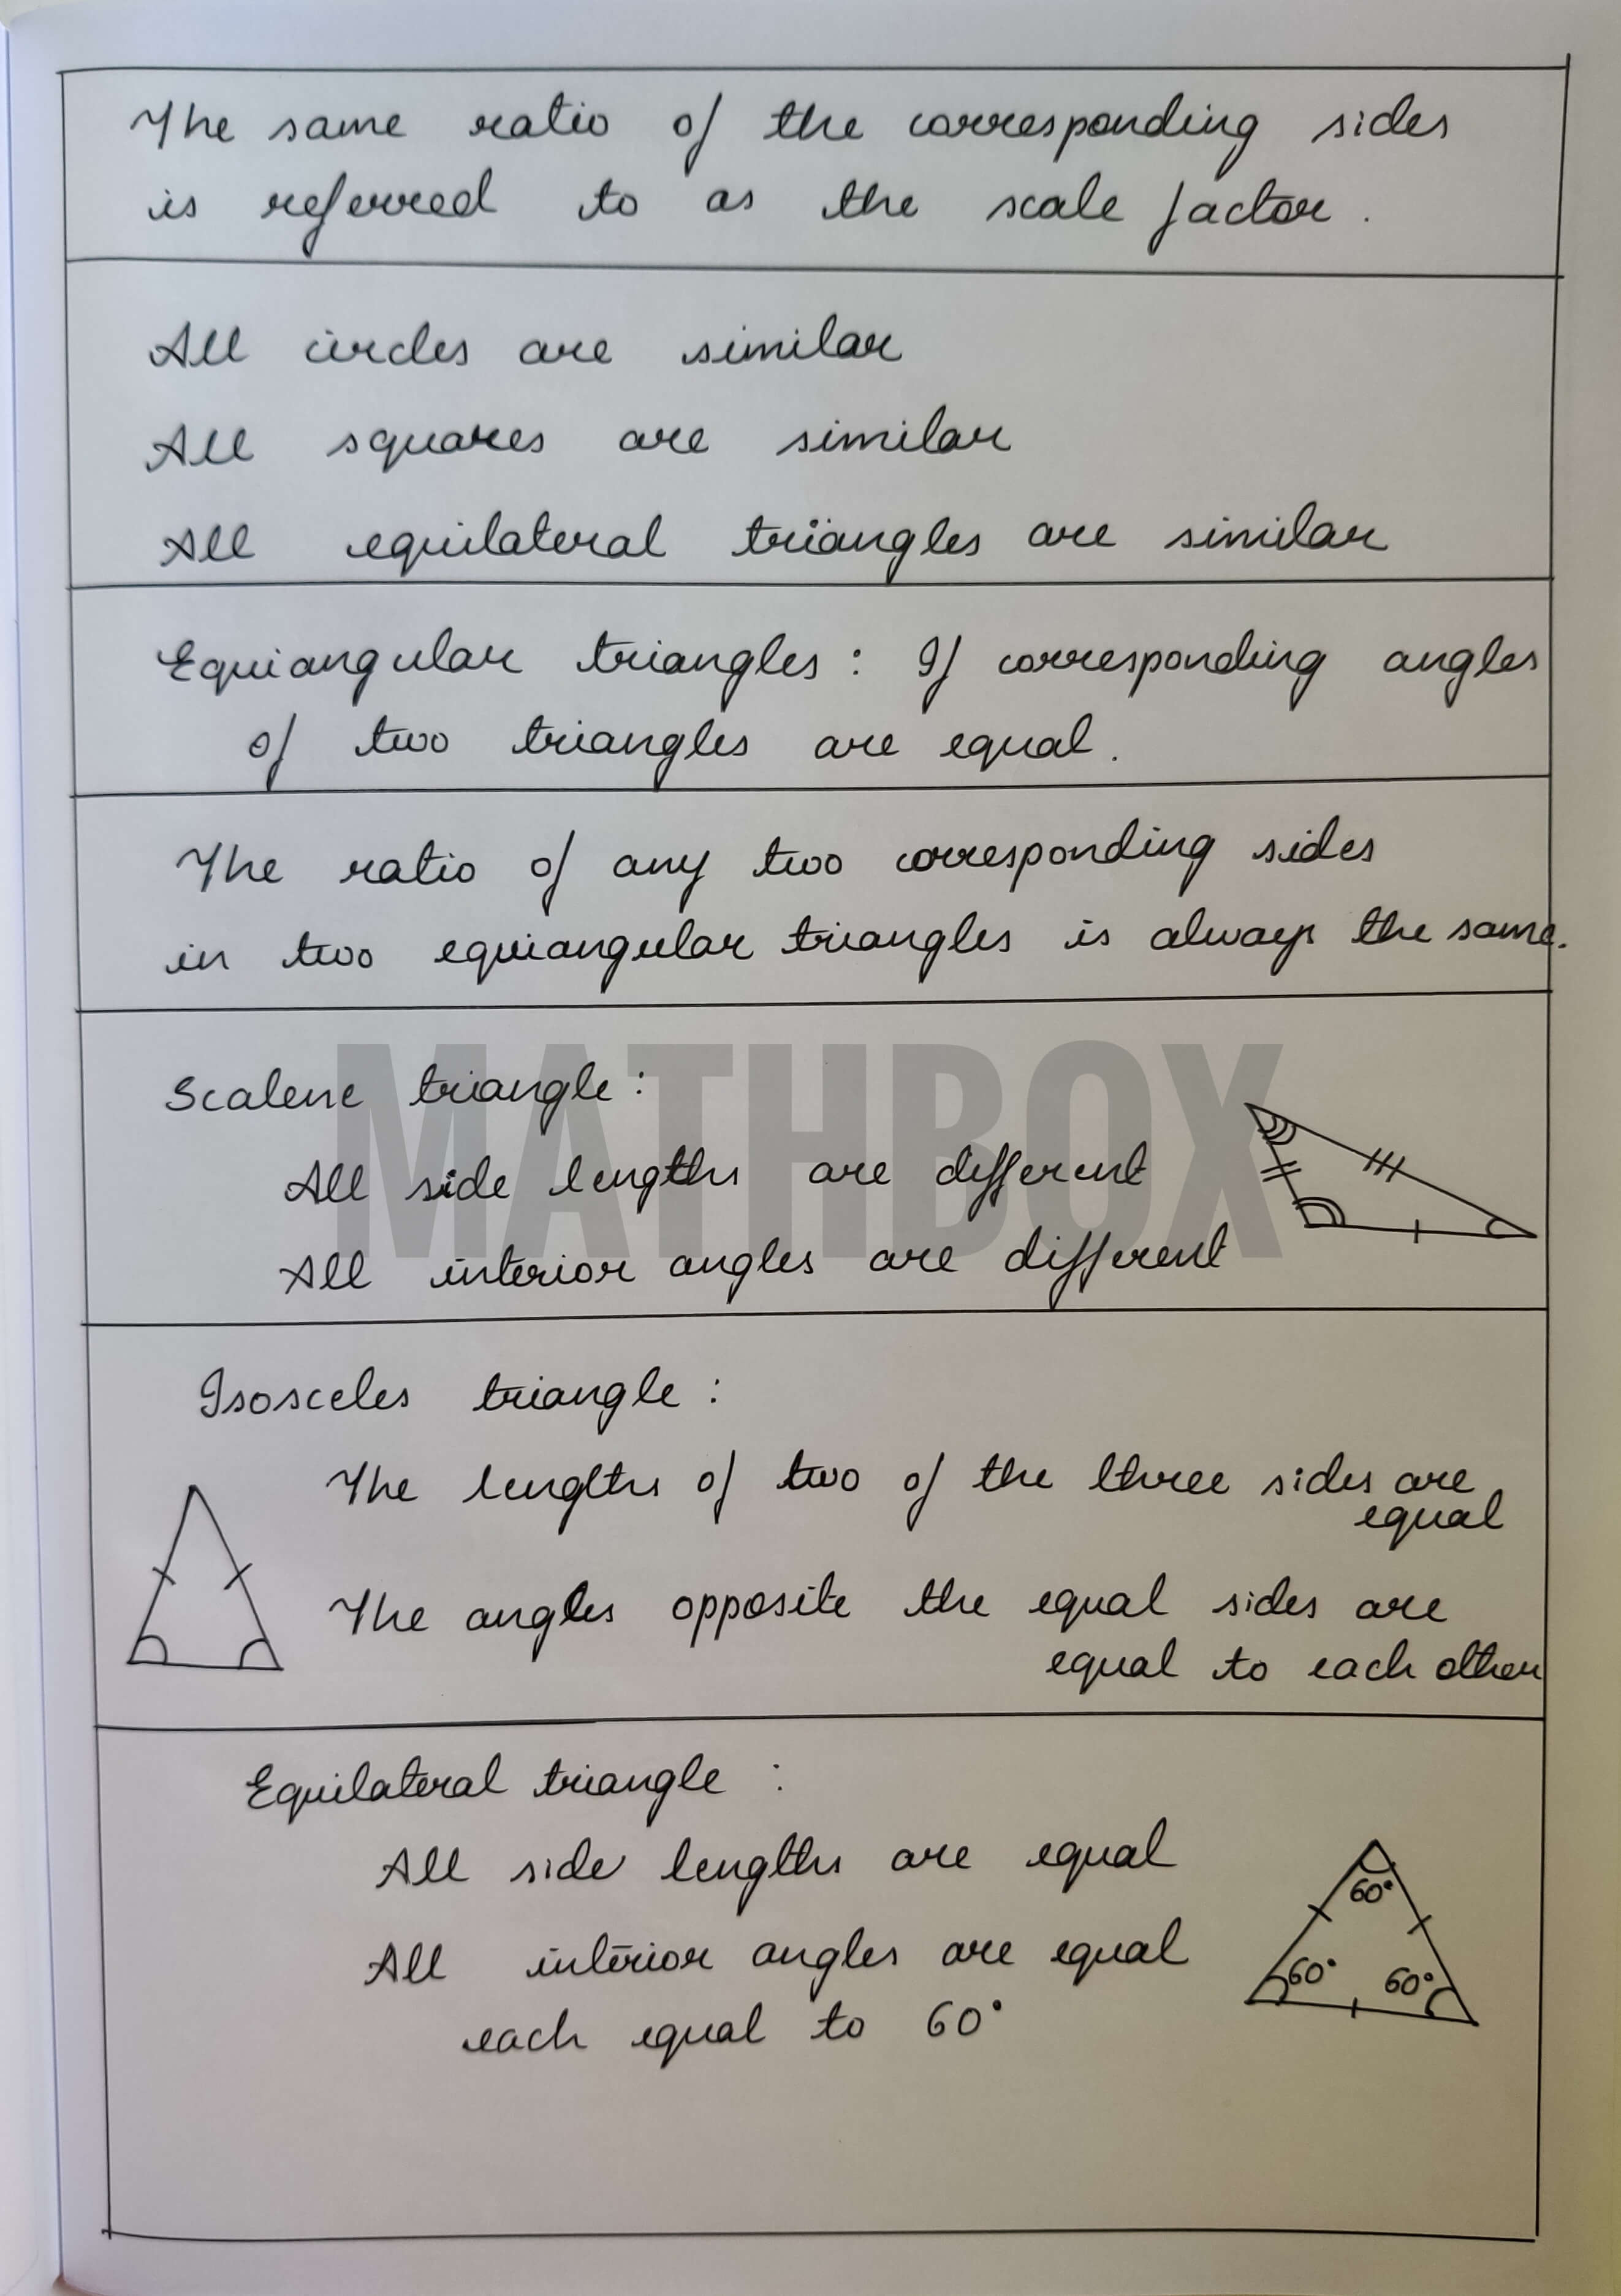 The same ratio of the corresponding sides
is referred to as the scale factor.
All circles are similar
All squares are similar
All equilateral triangles are similar
Equiangular triangles : If corresponding angles
of two triangles are equal.
The ratio of any two corresponding sides
in two equiangular triangles is always the same.
MATHBOX
Scalene triangle :
All side lengths are different
All interior angles are different
Isosceles triangle :
The lengths of two of the three sides are
equal
The angles opposite the equal sides are
equal to each other
Equilateral triangle :
All side lengths are equal
60°
All interior angles are equal
60° 60°
each equal to 60°